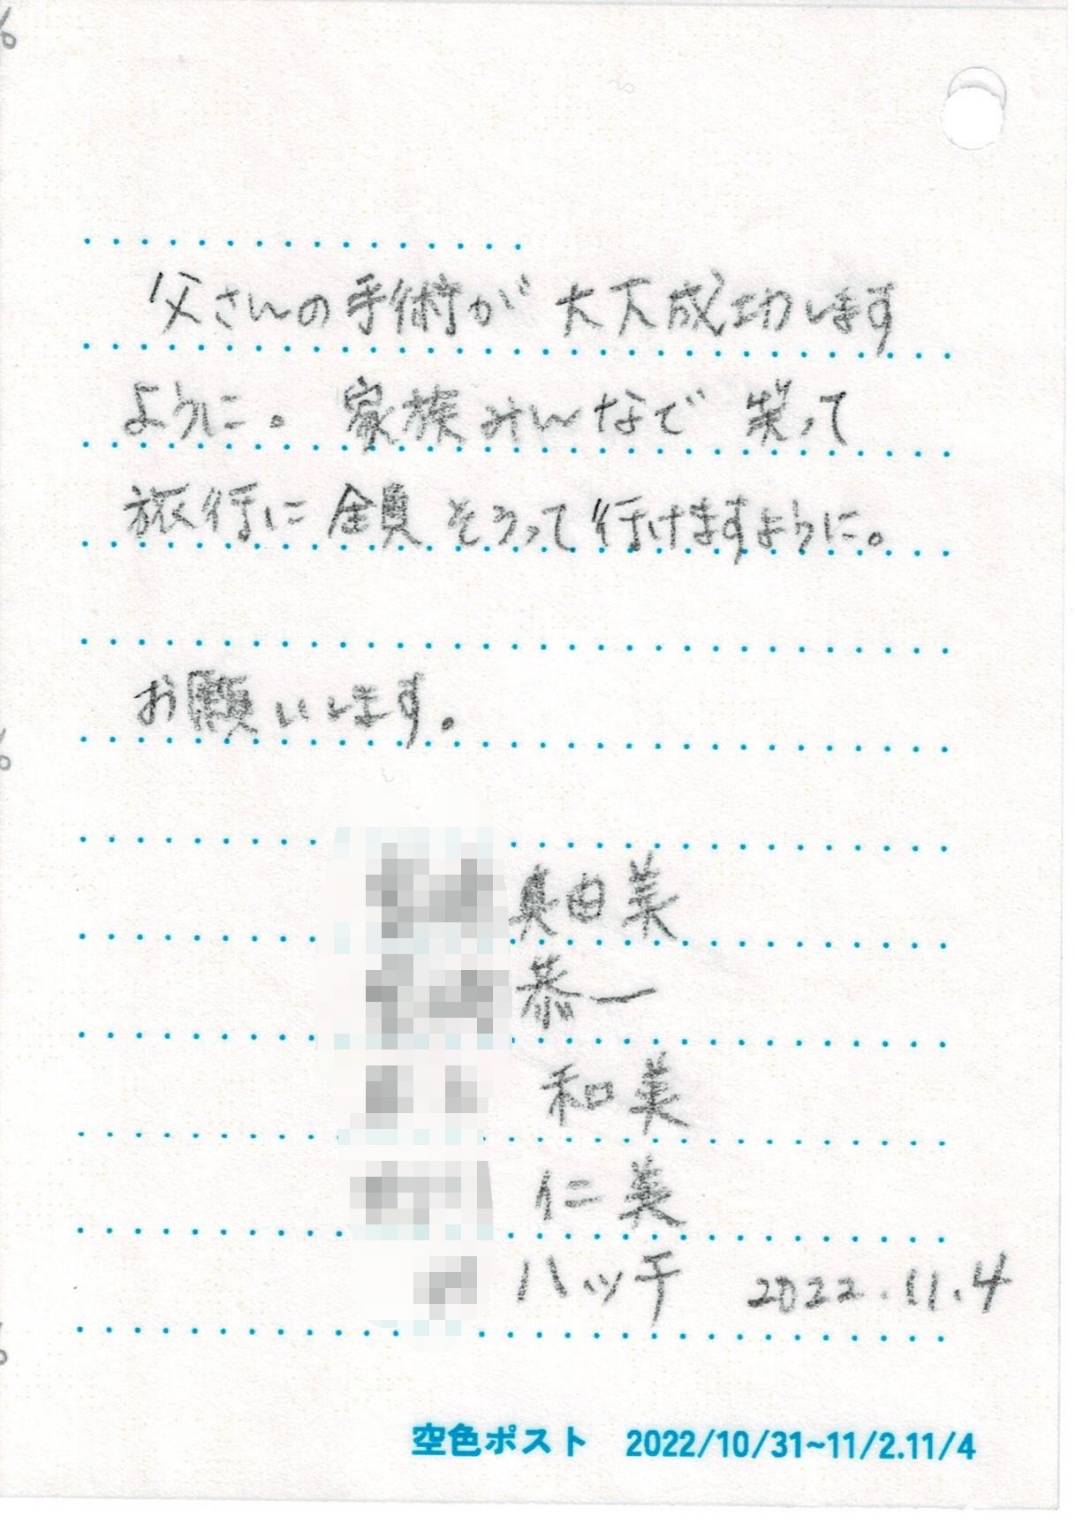 父さんの手術が 大大成功します
ように。 家族みんなで 笑って
旅行に 全員 そろって 行けますように。
お願いします。
真由美
恭一
和美
仁美
ハッチ 2022.11.4
空色ポスト 2022/10/31~11/2.11/4